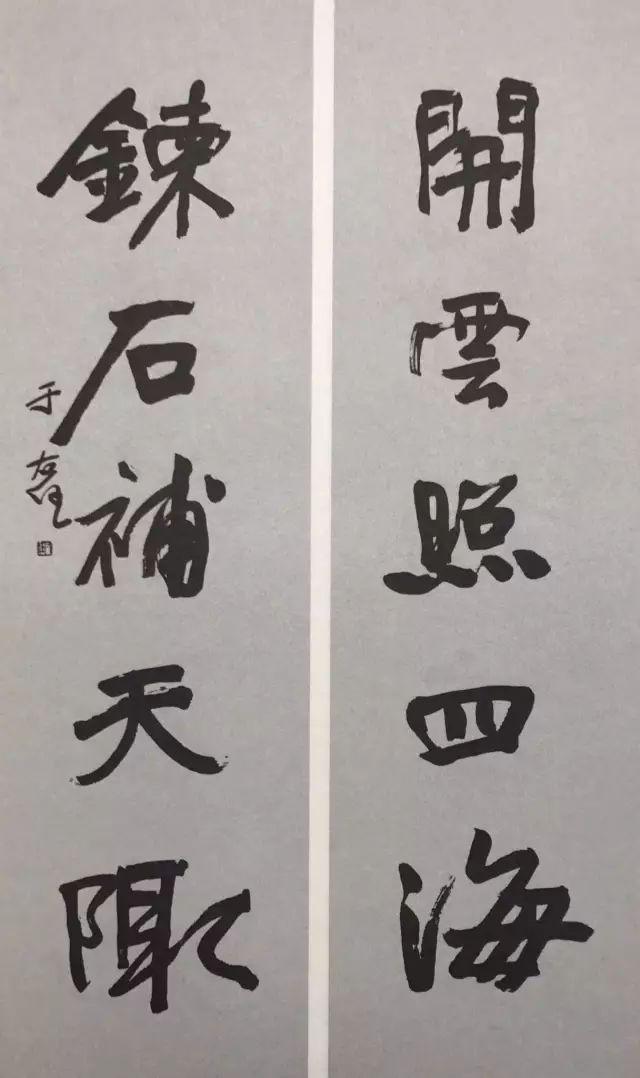 開雲照四海
鍊石補天陬
于右任